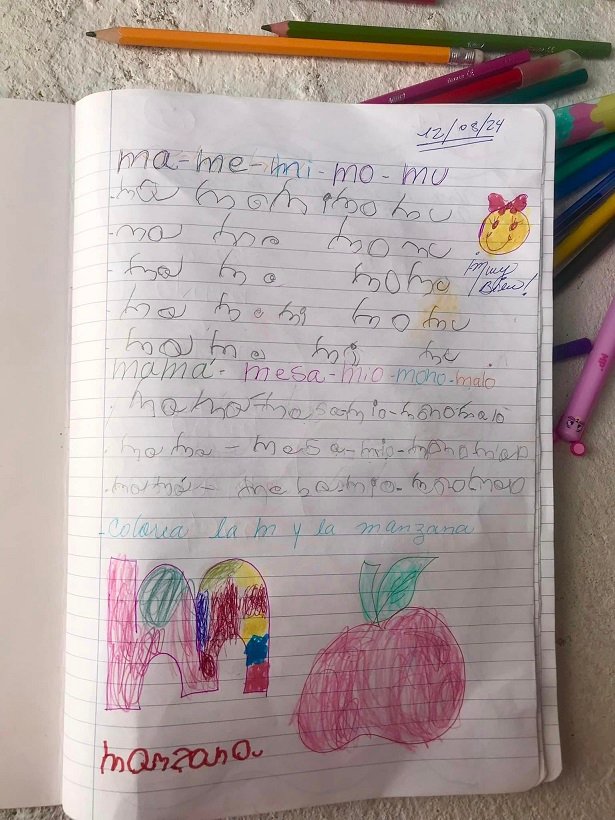 12/08/24
ma-me-mi-mo-mu
ma me mi mo mu
ma me mo mu
ma me mo mu
¡muy
Bien!
ma me mi mo mu
ma me mi mu
mamá-mesa-mio-mono-malo
mama-mesa-mio-mono malo
mama-mesa-mio-mono
mamá-mesa-mio-mono
-colorea la m y la manzana
manzana